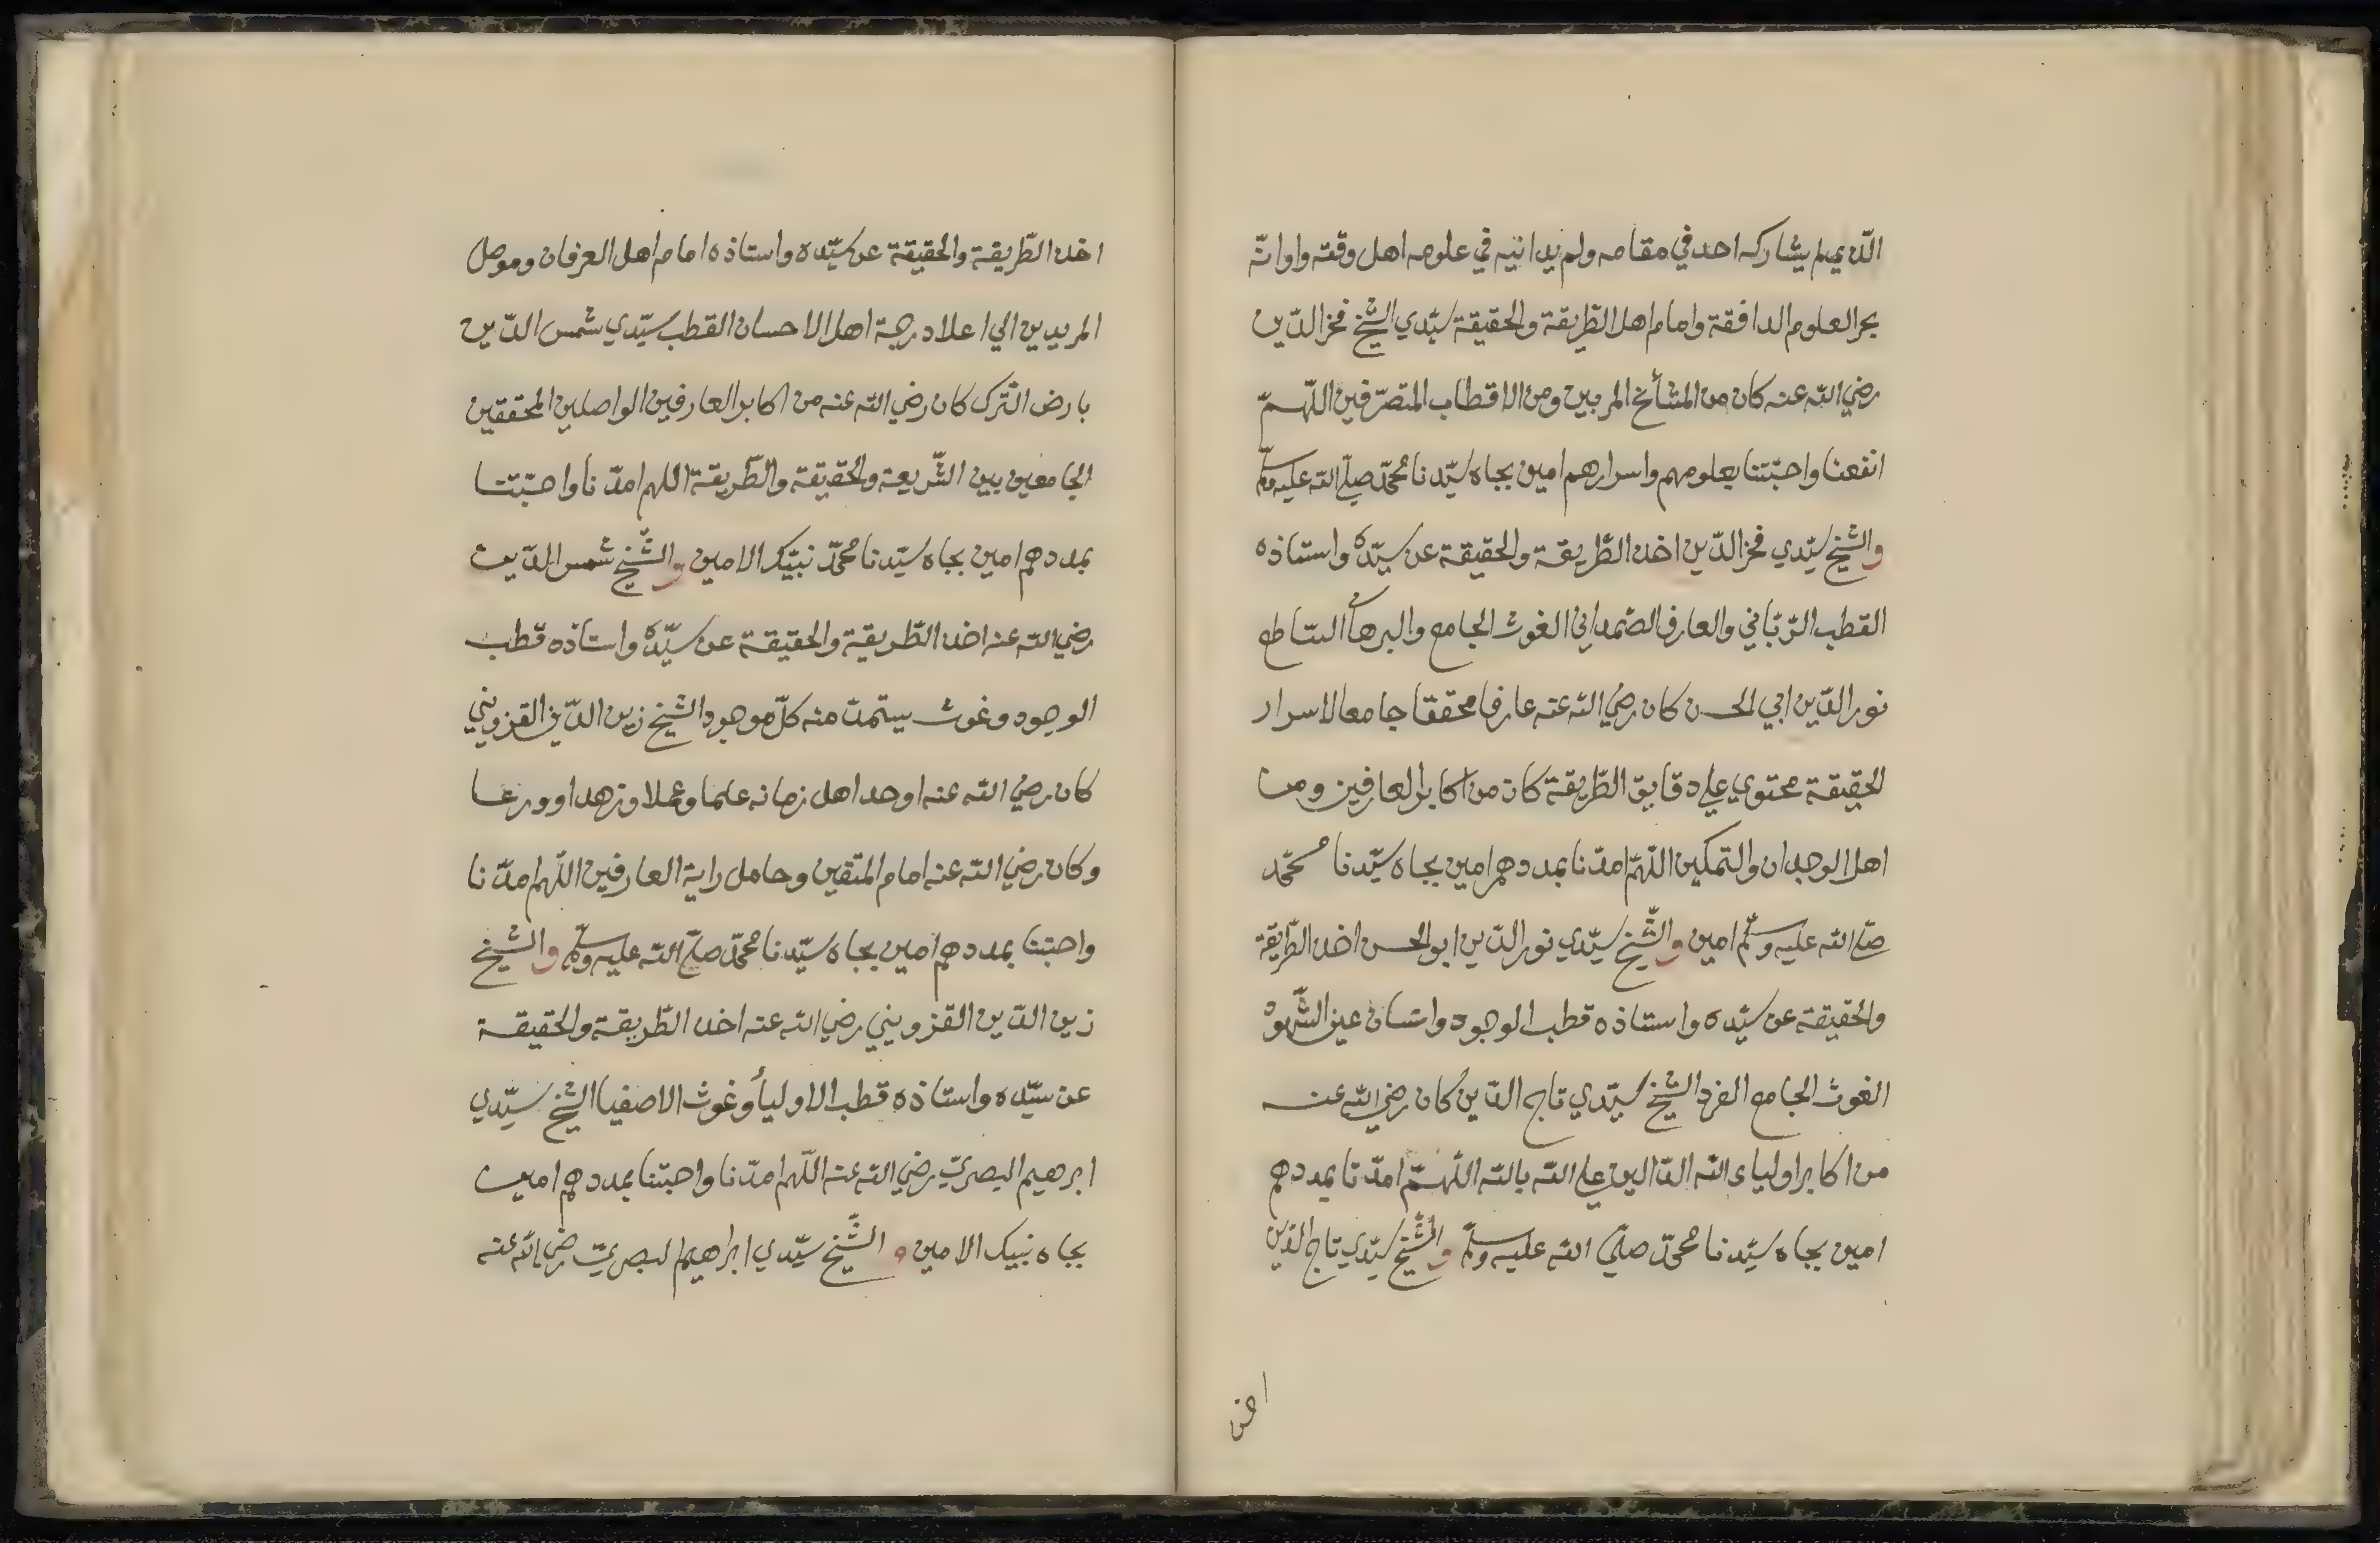 الّذي لم يشاركه احد في مقامه ولم يدانيه في علومه اهل وقته واوانه
بحر العلوم الدافقة وامام اهل الطّريقة والحقيقة سيّدي الشيخ فخر الدّين
رضي الله عنه كان من المشأئخ المربين ومن الاقطاب المتصرّفين اللّهمّ
انفعنا واحبّتنا بعلومهم واسرارهم امين بجاه سيّدنا محمّد صلّي الله عليه وسلّم
والشيخ سيّدي فخر الدّين اخذ الطّريقة والحقيقة عن سيّده واستاذه
القطب الرّبّاني والعارف الصّمداني الغوث الجامع والبرهان السّاطع
نور الدّين ابي الحسن كان رضي الله عنه عارفا محققا جامعا لاسرار
الحقيقة محتوي علي دقايق الطّريقة كان من اكابر العارفين ومن
اهل الوجدان والتمكين اللّهمّ امدّنا بمددهم امين بجاه سيّدنا محمّد
صلّي الله عليه وسلّم امين والشّيخ سيّدي نور الدّين ابو الحسن اخذ الطّريقة
والحقيقة عن سيّده واستاذه قطب الوجود وانسان عين الشّهود
الغوث الجامع الفرد الشيخ سيّدي تاج الدّين كان رضي الله عنه
من اكابر اولياء الله الدّالين علي الله بالله اللّهمّ امدّنا بمددهم
امين بجاه سيّدنا محمّد صلّي الله عليه وسلّم والشّيخ سيّدي تاج الدّين
اخذ
اخذ الطّريقة والحقيقة عن سيّده واستاذه امام اهل العرفان وموصل
المريدين الي اعلا درجة اهل الاحسان القطب سيّدي شمس الدّين
بارض الترك كان رضي الله عنه من اكابر العارفين الواصلين المحققين
الجامعين بين الشّريعة والحقيقة والطّريقة اللهم امدّنا واحبّتنا
بمددهم امين بجاه سيّدنا محمّد نبيّك الامين والشّيخ شمس الدّين
رضي الله عنه اخذ الطّريقة والحقيقة عن سيّده واستاذه قطب
الوجود وغوث يستمدّ منه كلّ موجود الشيخ زين الدّين القزويني
كان رضي الله عنه اوحد اهل زمانه علما وعملا وزهدا وورعا
وكان رضي الله عنه امام المتّقين وحامل راية العارفين اللّهم امدّنا
واحبّتنا بمددهم امين بجاه سيّدنا محمّد صلّي الله عليه وسلّم والشيخ
زين الدّين القزويني رضي الله عنه اخذ الطّريقة والحقيقة
عن سيّده واستاذه قطب الاوليأ وغوث الاصفيا الشيخ سيّدي
ابرهيم البصريّ رضي الله عنه اللّهم امدّنا واحبّتنا بمددهم امين
بجاه نبيك الامين و الشّيخ سيّدي ابراهيم البصريّ رضي الله عنه